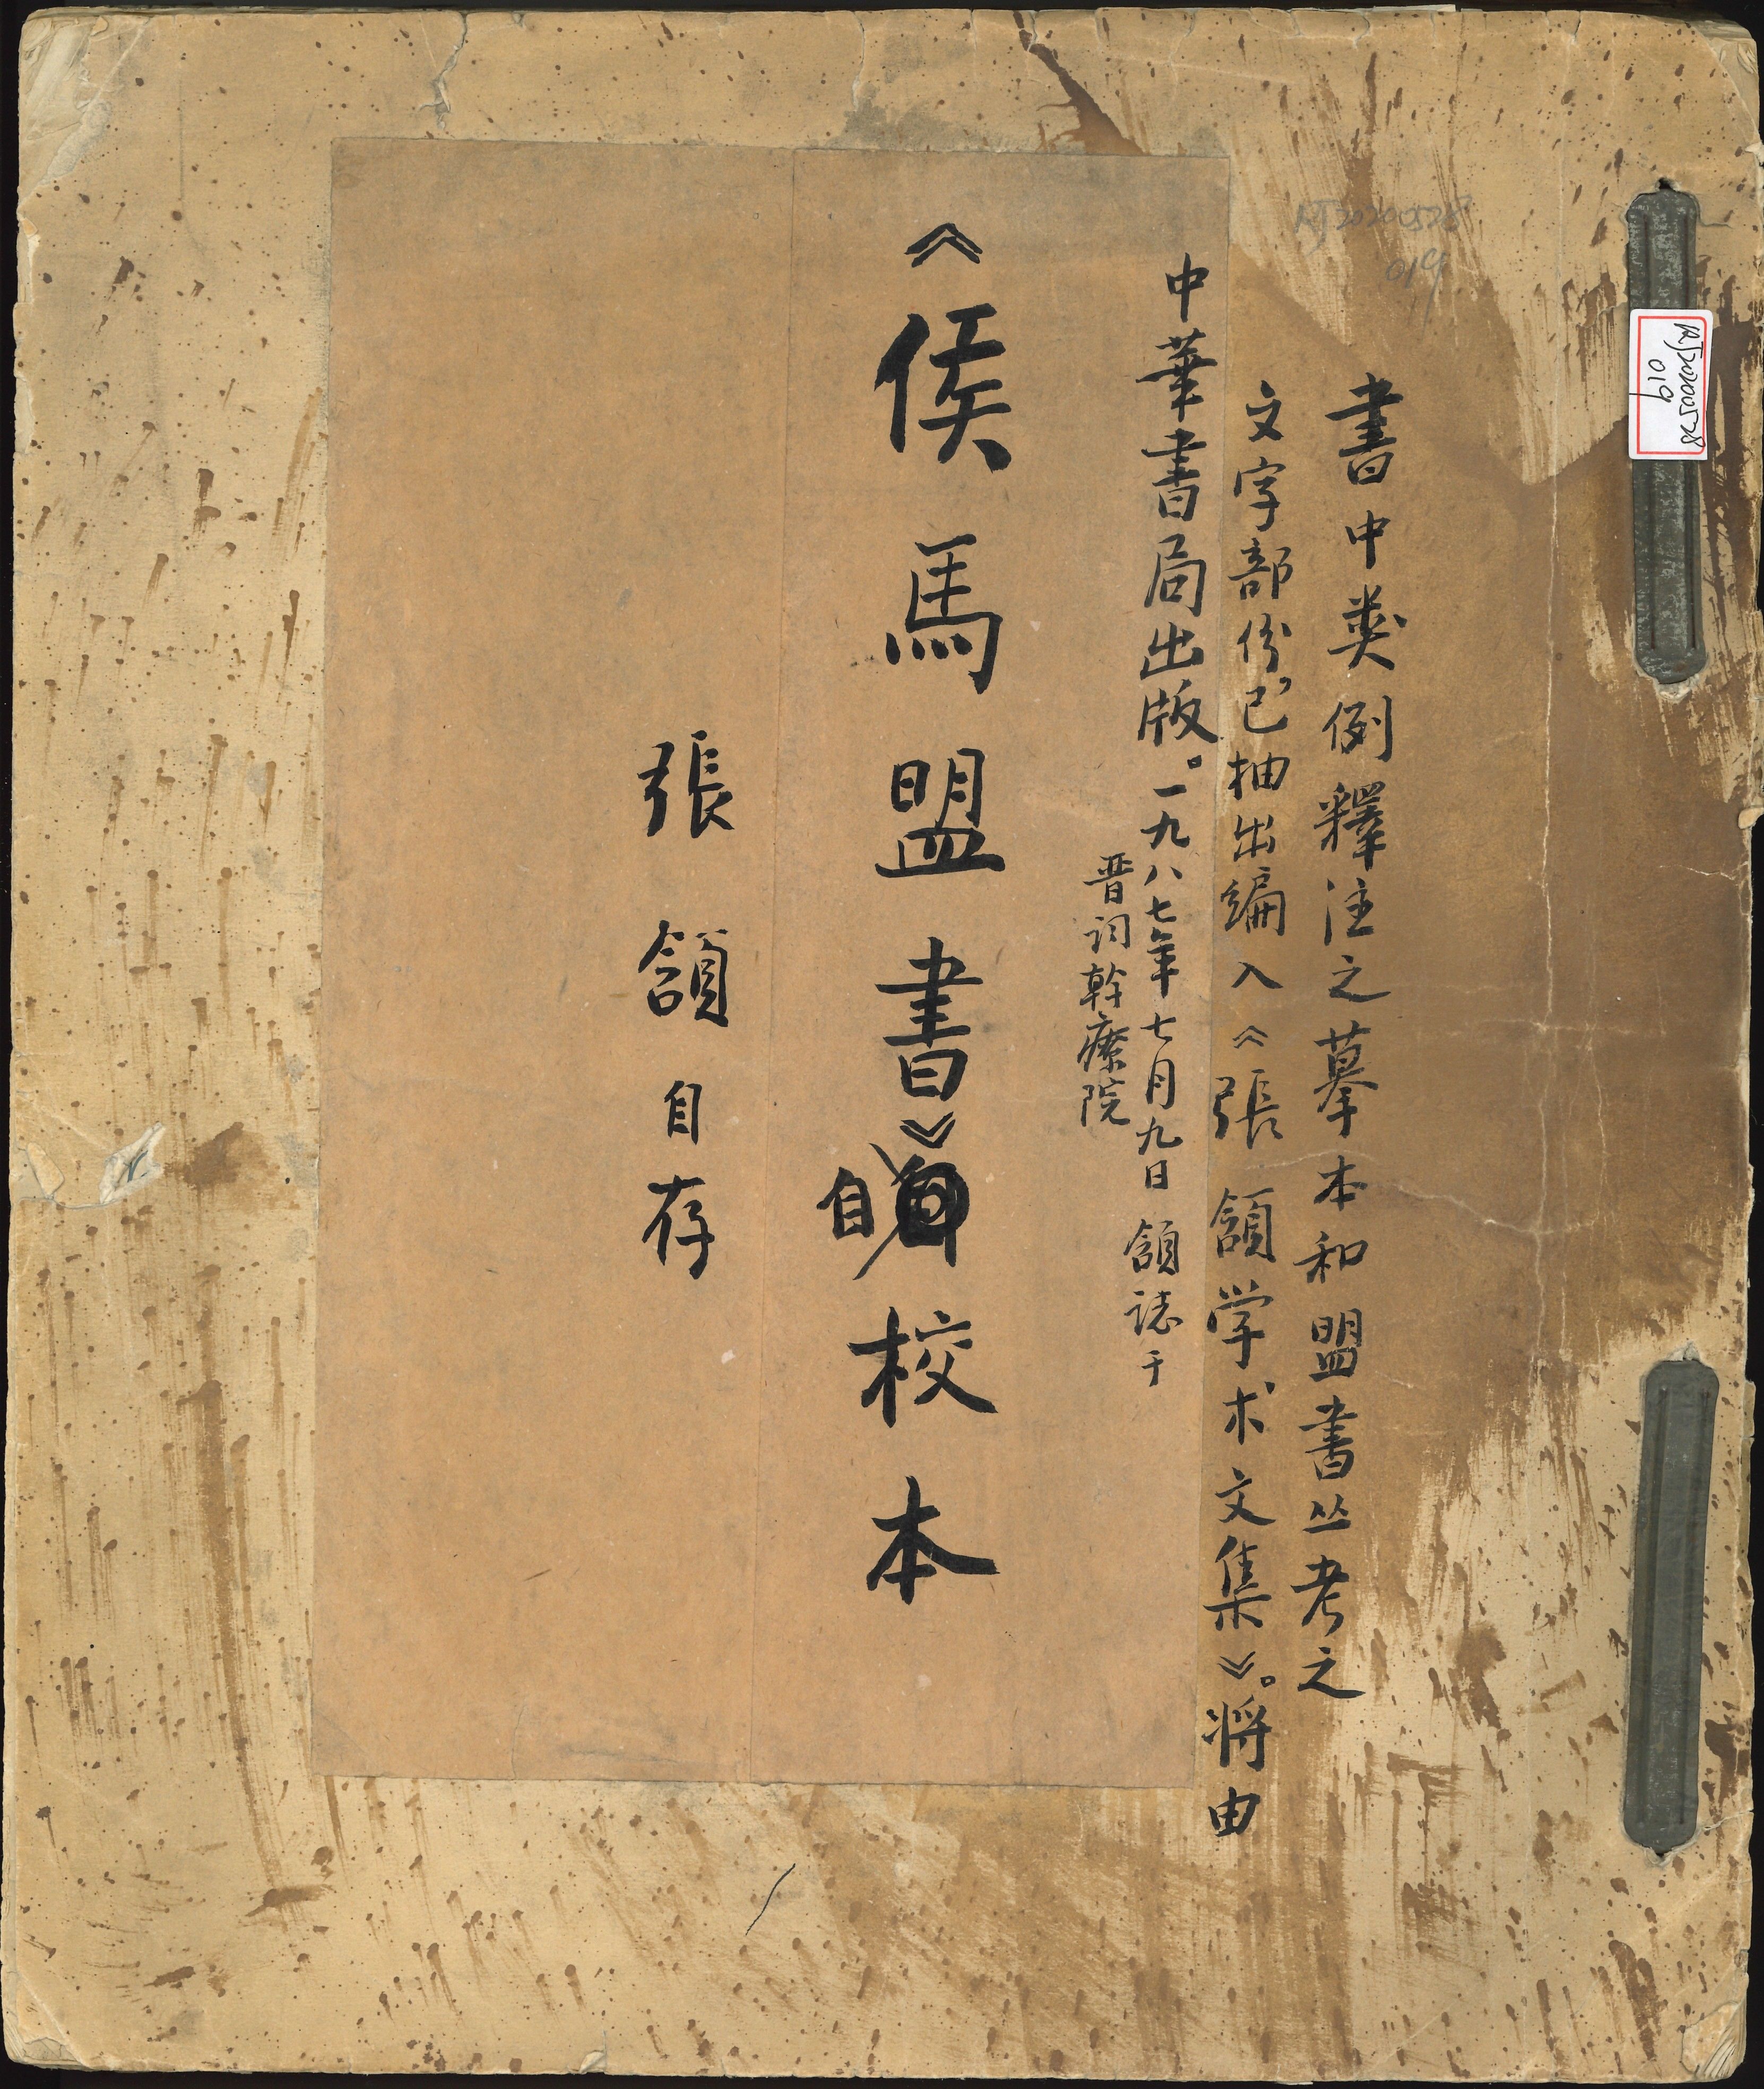 書中类例釋注之摹本和盟書丛考之
文字部份,已抽出编入《張頷学术文集》。将由
中華書局出版。一九八七年七月九日頷誌于
晋祠幹療院
《侯馬盟書》自校本
張頷自存
KJ20200528
019
KJ20200528
019